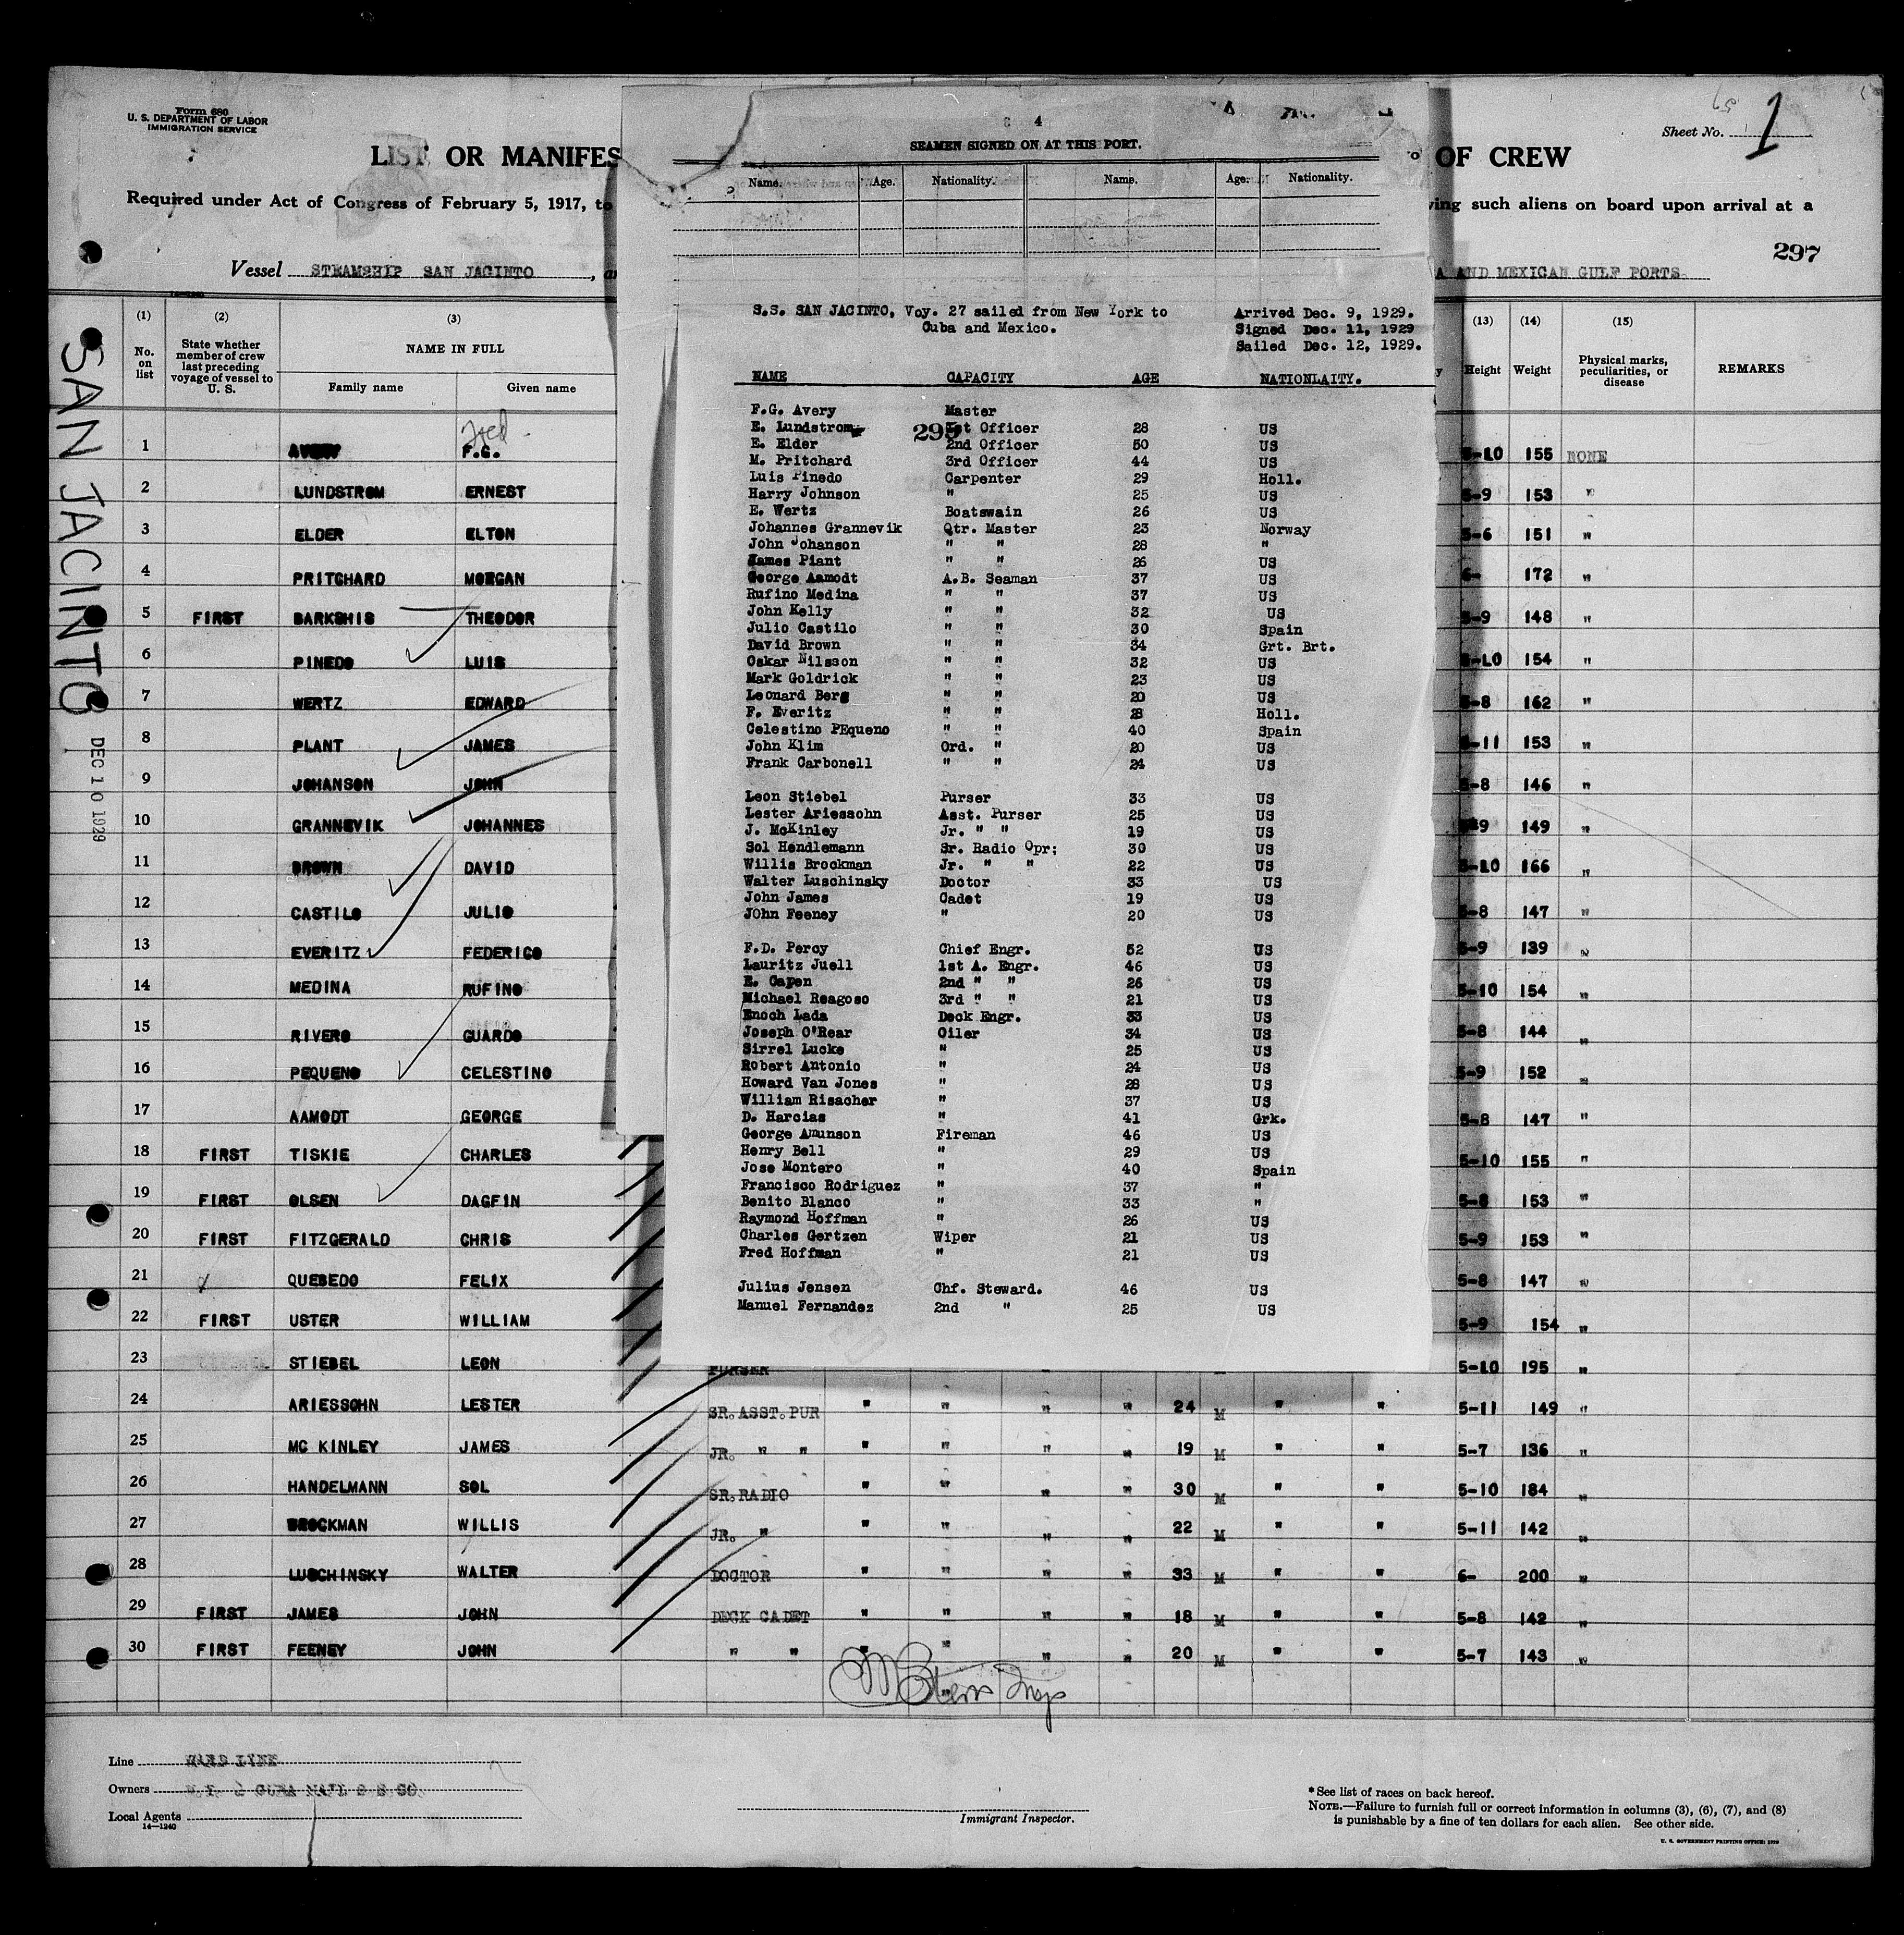 Form 680
U. S. DEPARTMENT OF LABOR
IMMIGRATION SERVICE
LIST OR MANIFES
OF CREW
Sheet No. 1
Required under Act of Congress of February 5, 1917, to
ving such aliens on board upon arrival at a
297
Vessel STEAMSHIP SAN JACINTO, a
A AND MEXICAN GULF PORTS
SAN JACINTO
DEC 10 1929
4
SEAMEN SIGNED ON AT THIS PORT.
Name. Age. Nationality. Name. Age. Nationality.
S.S. SAN JACINTO, Voy. 27 sailed from New York to
Cuba and Mexico.
Arrived Dec. 9, 1929.
Signed Dec. 11, 1929
Sailed Dec. 12, 1929.
NAME CAPACITY AGE NATIONLAITY.
F.G. Avery Master
E. Lundstrom 1st Officer 28 US
E. Elder 2nd Officer 50 US
M. Pritchard 3rd Officer 44 US
Luis Pinedo Carpenter 29 Holl.
Harry Johnson " 25 US
E. Wertz Boatswain 26 US
Johannes Grannevik Qtr. Master 23 Norway
John Johanson " " 28 "
James Plant " " 26 US
George Aamodt A.B. Seaman 37 US
Rufino Medina " " 37 US
John Kelly " " 32 US
Julio Castilo " " 30 Spain
David Brown " " 34 Grt. Brt.
Oskar Nilsson " " 32 US
Mark Goldrick " " 23 US
Leonard Berg " " 20 US
F. Everitz " " 28 Holl.
Celestino PEqueno " " 40 Spain
John Klim Ord. " 20 US
Frank Carbonell " " 24 US
Leon Stiebel Purser 33 US
Lester Ariessohn Asst. Purser 25 US
J. McKinley Jr. " " 19 US
Sol Hendlemann Sr. Radio Opr; 30 US
Willis Brockman Jr. " " 22 US
Walter Luschinsky Doctor 33 US
John James Cadet 19 US
JOhn Feeney " 20 US
F.D. Percy Chief Engr. 52 US
Lauritz Juell 1st A. Engr. 46 US
E. Capen 2nd " " 26 US
Michael Reagoso 3rd " " 21 US
Enoch Lada Deck Engr. 33 US
Joseph O'Rear Oiler 34 US
Sirrel Lucke " 25 US
Robert Antonio " 24 US
Howard Van Jones " 28 US
William Risacher " 37 US
D. Harcias " 41 Grk.
George Amunson Fireman 46 US
Henry Bell " 29 US
Jose Montero " 40 Spain
Francisco Rodriguez " 37 "
Benito Blanco " 33 "
Raymond Hoffman " 26 US
Charles Gertzen Wiper 21 US
Fred Hoffman " 21 US
Julius Jensen Chf. Steward. 46 US
Manuel Fernandez 2nd " 25 US
(1) (2) (3) (13) (14) (15)
No. on list
State whether member of crew last preceding voyage of vessel to U. S.
NAME IN FULL
Family name Given name
Height Weight
Physical marks, peculiarities, or disease
REMARKS
Fred
1 AVERY F.G. 5-10 155 NONE
2 LUNDSTROM ERNEST 5-9 153 "
3 ELDER ELTON 5-6 151 "
4 PRITCHARD MORGAN 6- 172 "
5 FIRST BARKSHIS THEODOR 5-9 148 "
6 PINEDO LUIS 5-10 154 "
7 WERTZ EDWARD 5-8 162 "
8 PLANT JAMES 5-11 153 "
9 JOHANSON JOHN 5-8 146 "
10 GRANNEVIK JOHANNES 5-9 149 "
11 BROWN DAVID 5-10 166 "
12 CASTILO JULIO 5-8 147 "
13 EVERITZ FEDERICO 5-9 139 "
14 MEDINA RUFINO 5-10 154 "
15 RIVERO GUARDO 5-8 144 "
16 PEQUENO CELESTINO 5-9 152 "
17 AAMODT GEORGE 5-8 147 "
18 FIRST TISKIE CHARLES 5-10 155 "
19 FIRST OLSEN DAGFIN 5-8 153 "
20 FIRST FITZGERALD CHRIS 5-9 153 "
21 QUEBEDO FELIX 5-8 147 "
22 FIRST USTER WILLIAM 5-9 154 "
23 STIEBEL LEON PURSER 5-10 195 "
24 ARIESSOHN LESTER SR. ASST. PUR " " " " 24 M " " 5-11 149 "
25 MC KINLEY JAMES JR. " " " " " " 19 M " " 5-7 136 "
26 HANDELMANN SOL SR. RADIO " " " " 30 M " " 5-10 184 "
27 BROCKMAN WILLIS JR. " " " " " 22 M " " 5-11 142 "
28 LUSCHINSKY WALTER DOCTOR " " " " 33 M " " 6- 200 "
29 FIRST JAMES JOHN DECK CADET " " " " 18 M " " 5-8 142 "
30 FIRST FEENEY JOHN " " " " " " 20 M " " 5-7 143 "
Line WARD LINE
Owners N Y & CUBA MAIL S S CO
Local Agents
14—1240
Immigrant Inspector.
* See list of races on back hereof.
NOTE.—Failure to furnish full or correct information in columns (3), (6), (7), and (8)
is punishable by a fine of ten dollars for each alien. See other side.
U. S. GOVERNMENT PRINTING OFFICE: 1928